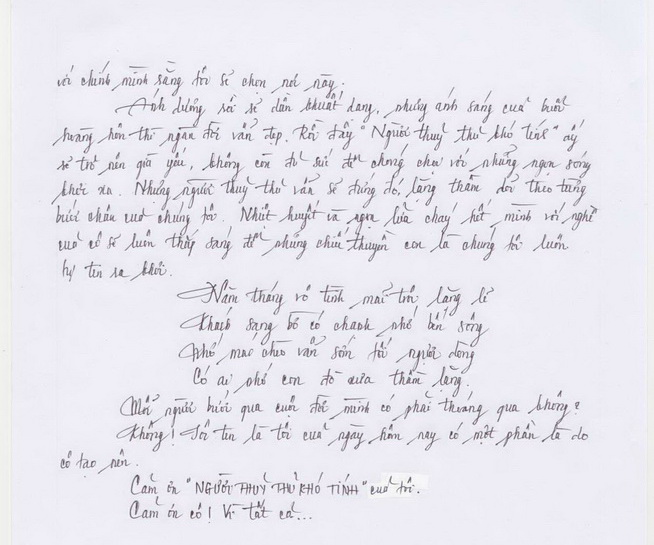 với chính mình rằng tôi sẽ chọn nơi này.
Ánh dương rồi sẽ dần khuất dạng, nhưng ánh sáng của buổi
hoàng hôn thì ngàn đời vẫn đẹp. Rồi đây "Người thuỷ thủ khó tính" ấy
sẽ trở nên già yếu, không còn đủ sức để chống chọi với những ngọn sóng
khơi xa. Nhưng người thuỷ thủ vẫn sẽ đứng đó, lặng thầm dõi theo từng
bước chân của chúng tôi. Nhiệt huyết và ngọn lửa cháy hết mình với nghề
của cô sẽ luôn thắp sáng để những chiếc thuyền con là chúng tôi luôn
tự tin ra khơi.
Năm tháng vô tình mãi trôi lặng lẽ
Khách sang bờ có chạnh nhớ bến sông
Nhớ mái chèo vẫn sớm tối người đong
Có ai nhớ con đò xưa thầm lặng.
Mỗi người bước qua cuộc đời mình có phải thoáng qua không?
Không! Tôi tin là tôi của ngày hôm nay có một phần là do
cô tạo nên.
Cảm ơn "NGƯỜI THUỶ THỦ KHÓ TÍNH" của tôi.
Cảm ơn cô! Vì tất cả...